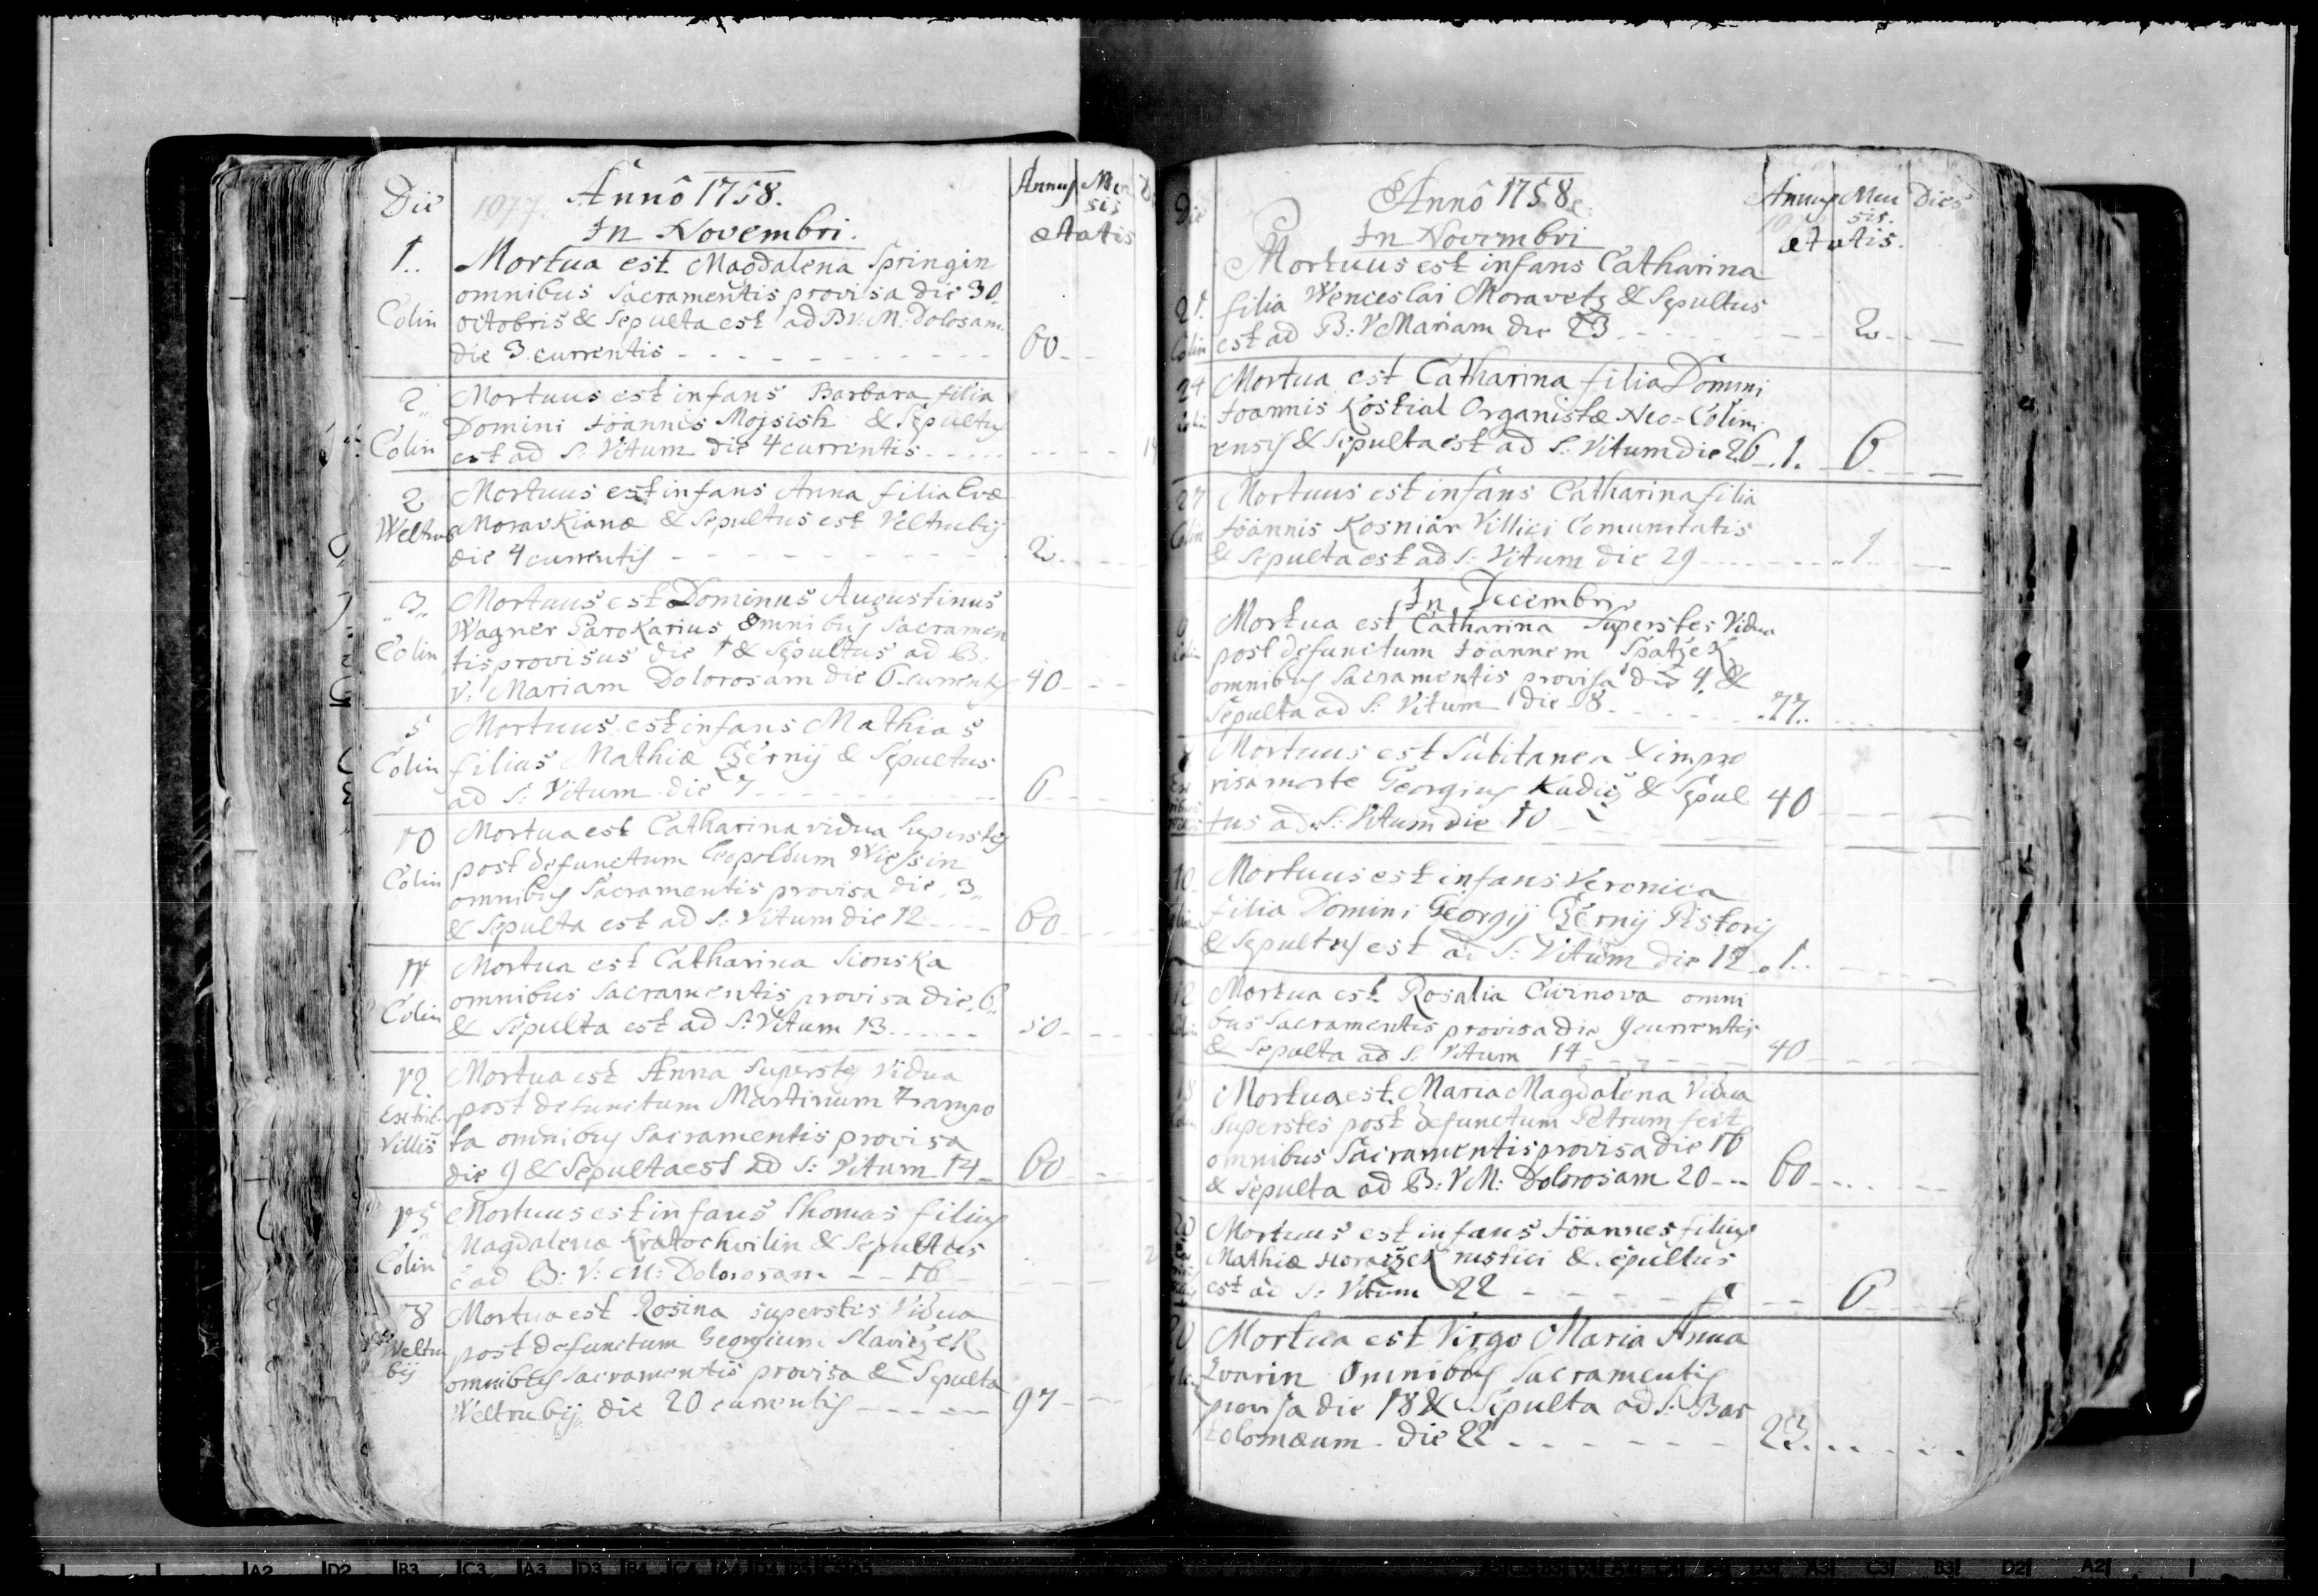 Die
1077.
Anno 1758.
Annus Men
sis
ætatis
In Novembri.
1..
Colin
Mortua est Magdalena Springin
omnibus Sacramentis provisa die 30.
octobris & Sepulta est ad B.V.M. Dolosam.
die 3 currentis
60
2..
Colin
Mortuus est infans Barbara filia
Domini Joannis Mojsish & Sepultus
est ad S: Vitum die 4 currentis
14
2
Weltrub
Mortuus est infans Anna filia Evæ
Moravkianæ & Sepultus est Veltrubij
die 4 currentis
2
3..
Colin
Mortuus est Dominus Augustinus
Wagner Parokarius omnibus Sacramen
tis provisus die 1 & Sepultus ad B:
V: Mariam Dolorosam die 6 currentis
40
5
Colin
Mortuus est infans Mathias
filius Mathiæ Czerny & Sepultus
ad S: Vitum die 7
6
10
Colin
Mortua est Catharina vidua Superstes
post defunctum Leopoldum Wiessin
omnibus Sacramentis provisa die 3..
& Sepulta est ad S: Vitum die 12
60
11
Colin
Mortua est Catharina Sionska
omnibus Sacramentis provisa die 6..
& Sepulta est ad S: Vitum 13
50
12.
Villis
Mortua est Anna Superstes Vidua
post defunctum Martinum Trampo
ta omnibus Sacramentis provisa
die 9 & Sepulta est ad S: Vitum 14
60
15
Colin
Mortuus est infans Thomas filius
Magdalenæ Kratochvilin & Sepultus
é ad B: V: M: Dolorosam 16
2
18
Veltru
bij
Mortua est Rosina superstes Vidua
post defunctum Georgium Slaviczek
omnibus Sacramentis provisa & Sepulta
Weltrubij die 20 currentis
97
Die
Anno 1758.
Annus Men
sis.
Dies
ætatis.
In Novembri
21.
Colin
Mortuus est infans Catharina
filia Wenceslai Moravetz & Sepultus
est ad B: V Mariam die 23
2
24
Colin
Mortua est Catharina filia Domini
Joannis Kostial Organistæ Neo=Colini
ensis & Sepulta est ad S: Vitum die 26
1. 6
27
Colin
Mortuus est infans Catharina filia
Joannis Kosniar Villici Comunitatis
& Sepulta est ad S: Vitum die 29
1
In Decembri
6
Colin
Mortua est Catharina Superstes Vidua
post defunctum Joannem
omnibus Sacramentis provisa die 4 &
Sepulta ad S: Vitum die 8
77
Mortuus est Subitanea & impro
visa morte Georgius Kudicz & Sepul
tus ad S: Vitum die 10
40
10
Colin
Mortuus est infans Veronica
filia Domini Georgij Czernij Pistoris
& Sepultus est ad S: Vitum die 12
1
12
Colin
Mortua est Rosalia Cwinova omni
bus Sacramentis provisa die 9 currentis
& Sepulta ad S: Vitum 14
40
18
Colin
Mortua est Maria Magdalena Vidua
Superstes post defunctum Petrum feit
omnibus Sacramentis provisa die 16
& Sepulta ad B: V M: Dolorosam 20
60
20
Mortuus est infans Joannes filius
Mathiæ Horaczek rustici & Sepultus
est ad S: Vitum 22
6
20
Mortua est Virgo Maria Anna
Zvarin Omnibus Sacramentis
provisa die 18 & Sepulta ad S: Bar
tolomæum die 22
23